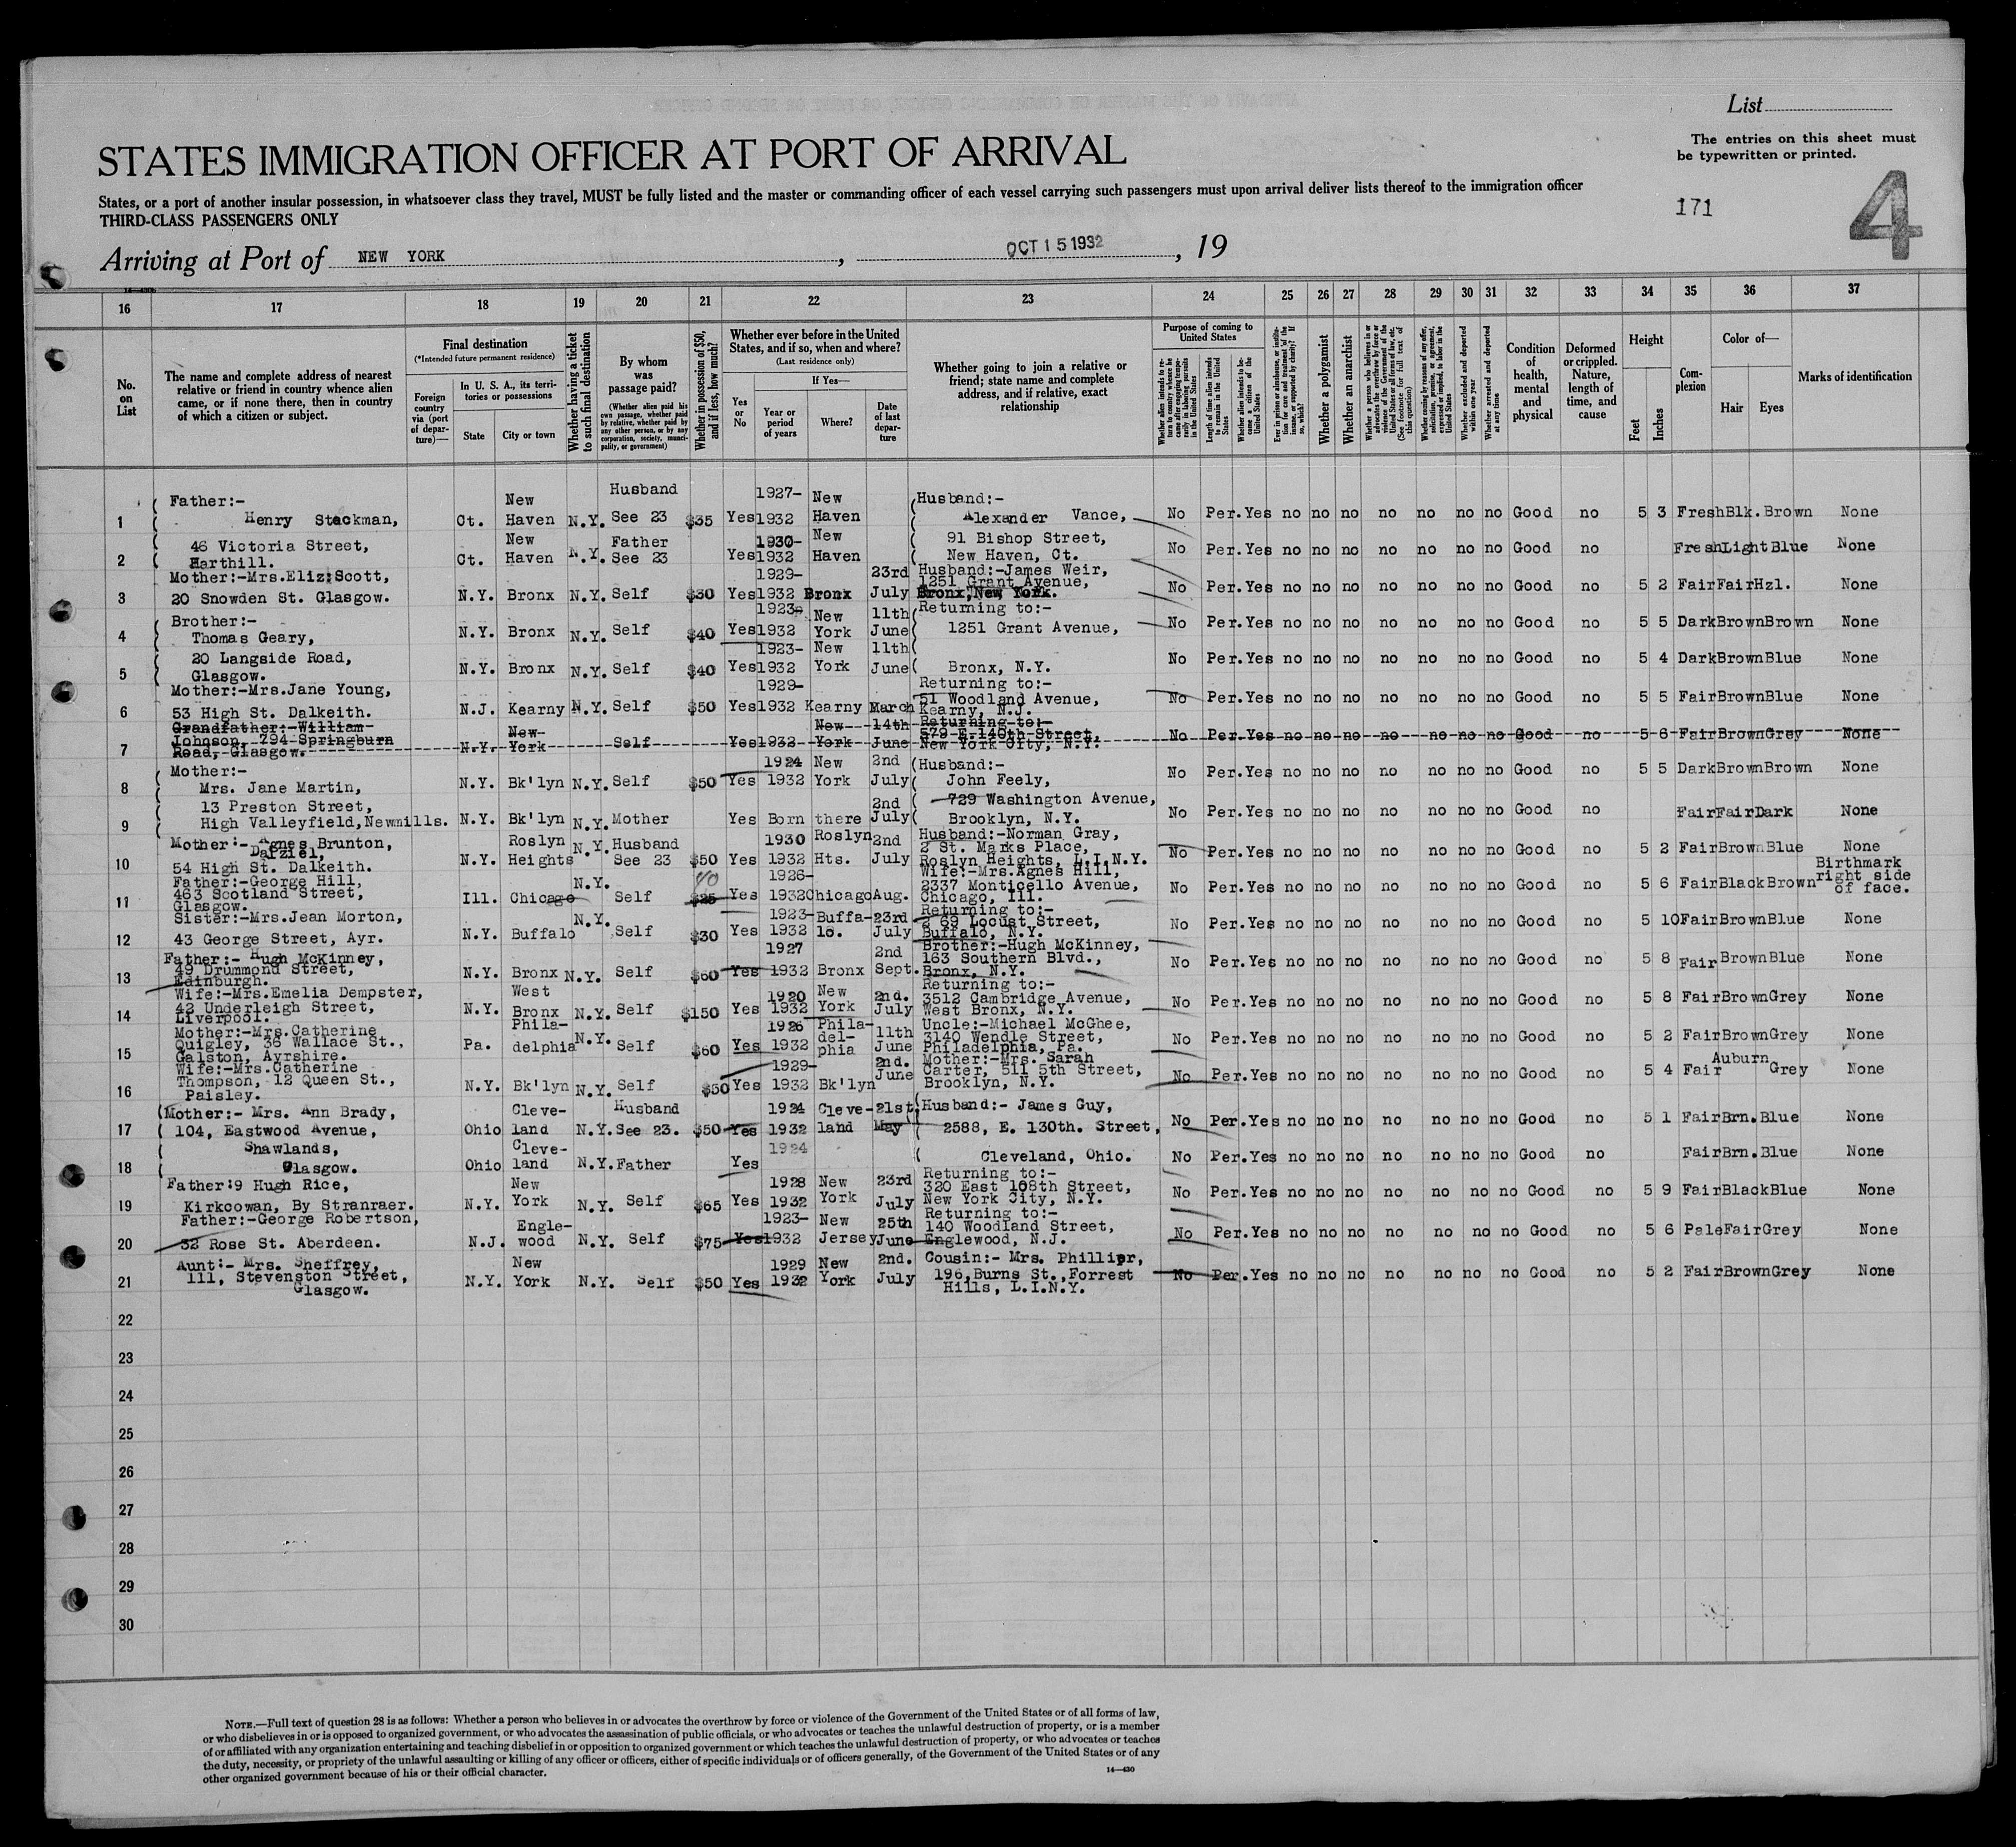 List
The entries on this sheet must
be typewritten or printed.
STATES IMMIGRATION OFFICER AT PORT OF ARRIVAL
States, or a port of another insular possession, in whatsoever class they travel, MUST be fully listed and the master or commanding officer of each vessel carrying such passengers must upon arrival deliver lists thereof to the immigration officer
THIRD-CLASS PASSENGERS ONLY
171
4
Arriving at Port of NEW YORK, OCT 15 1932, 19
16 17 18 19 20 21 22 23 24 25 26 27 28 29 30 31 32 33 34 35 36 37
No. on List
The name and complete address of nearest relative or friend in country whence alien came, or if none there, then in country of which a citizen or subject.
Final destination
(*Intended future permanent residence)
Foreign country via (port of departure)—
In U. S. A., its territories or possessions
State
City or town
Whether having a ticket to such final destination
By whom was passage paid?
(Whether alien paid his own passage, whether paid by relative, whether paid by any other person, or by any corporation, society, municipality, or government)
Whether in possession of $50, and if less, how much?
Whether ever before in the United States, and if so, when and where?
(Last residence only)
Yes or No
If Yes—
Year or period of years
Where?
Date of last departure
Whether going to join a relative or friend; state name and complete address, and if relative, exact relationship
Purpose of coming to United States
Whether alien intends to return to country whence he came after engaging temporarily in laboring pursuits in the United States
Length of time alien intends to remain in the United States
Whether alien intends to become a citizen of the United States
Ever in prison or almshouse, or institution for care and treatment of the insane, or supported by charity? If so, which?
Whether a polygamist
Whether an anarchist
Whether a person who believes in or advocates the overthrow by force or violence of the Government of the United States or all forms of law, etc. (See footnote for full text of this question)
Whether coming by reasons of any offer, solicitation, promise, or agreement, expressed or implied, to labor in the United States
Whether excluded and deported within one year
Whether arrested and deported at any time
Condition of health, mental and physical
Deformed or crippled. Nature, length of time, and cause
Height
Feet
Inches
Complexion
Color of—
Hair
Eyes
Marks of identification
1 Father:- Henry Stackman, Ct. New Haven N.Y. Husband See 23 $35 Yes 1927-1932 New Haven Husband:- Alexander Vance, No Per. Yes no no no no no no no Good no 5 3 Fresh Blk. Brown None
2 46 Victoria Street, Harthill. Ct. New Haven N.Y. Father See 23 Yes 1930-1932 New Haven 91 Bishop Street, New Haven, Ct. No Per. Yes no no no no no no no Good no Fresh Light Blue None
3 Mother:-Mrs.Eliz:Scott, 20 Snowden St. Glasgow. N.Y. Bronx N.Y. Self $30 Yes 1929-1932 Bronx 23rd July Husband:-James Weir, 1251 Grant Avenue, Bronx, New York. No Per. Yes no no no no no no no Good no 5 2 Fair Fair Hzl. None
4 Brother:- Thomas Geary, N.Y. Bronx N.Y. Self $40 Yes 1923-1932 New York 11th June Returning to:- 1251 Grant Avenue, No Per. Yes no no no no no no no Good no 5 5 Dark Brown Brown None
5 20 Langside Road, Glasgow. N.Y. Bronx N.Y. Self $40 Yes 1923-1932 New York 11th June Bronx, N.Y. No Per. Yes no no no no no no no Good no 5 4 Dark Brown Blue None
6 Mother:-Mrs.Jane Young, 53 High St. Dalkeith. N.J. Kearny N.Y. Self $50 Yes 1929-1932 Kearny March Returning to:- 51 Woodland Avenue, Kearny, N.J. No Per. Yes no no no no no no no Good no 5 5 Fair Brown Blue None
7 Grandfather:-William Johnson, 794 Springburn Road, Glasgow. N.Y. New York Self Yes 1932 New York 14th June Returning to:- 579 E.140th Street, New York City, N.Y. No Per. Yes no no no no no no no Good no 5 6 Fair Brown Grey None
8 Mother:- Mrs. Jane Martin, N.Y. Bk'lyn N.Y. Self $50 Yes 1924 1932 New York 2nd July Husband:- John Feely, No Per. Yes no no no no no no no Good no 5 5 Dark Brown Brown None
9 13 Preston Street, High Valleyfield, Newmills. N.Y. Bk'lyn N.Y. Mother Yes Born there 2nd July 729 Washington Avenue, Brooklyn, N.Y. No Per. Yes no no no no no no no Good no Fair Fair Dark None
10 Mother:- Agnes Brunton, Dalziel, 54 High St. Dalkeith. N.Y. Roslyn Heights N.Y. Husband See 23 $50 Yes 1930 1932 Roslyn Hts. 2nd July Husband:-Norman Gray, 2 St. Marks Place, Roslyn Heights, L.I.N.Y. No Per. Yes no no no no no no no Good no 5 2 Fair Brown Blue None
11 Father:-George Hill, 463 Scotland Street, Glasgow. Ill. Chicago N.Y. Self 40 $25 Yes 1926-1932 Chicago Aug. Wife:-Mrs.Agnes Hill, 2337 Monticello Avenue, Chicago, Ill. No Per. Yes no no no no no no no Good no 5 6 Fair Black Brown Birthmark right side of face.
12 Sister:-Mrs.Jean Morton, 43 George Street, Ayr. N.Y. Buffalo N.Y. Self $30 Yes 1923-1932 Buffalo. 23rd July Returning to:- 69 Locust Street, Buffalo, N.Y. No Per. Yes no no no no no no no Good no 5 10 Fair Brown Blue None
13 Father:- Hugh McKinney, 49 Drummond Street, Edinburgh. N.Y. Bronx N.Y. Self $60 Yes 1927 1932 Bronx 2nd Sept. Brother:-Hugh McKinney, 163 Southern Blvd., Bronx, N.Y. No Per. Yes no no no no no no no Good no 5 8 Fair Brown Blue None
14 Wife:-Mrs.Emelia Dempster, 42 Underleigh Street, Liverpool. N.Y. West Bronx N.Y. Self $150 Yes 1920 1932 New York 2nd. July Returning to:- 3512 Cambridge Avenue, West Bronx, N.Y. No Per. Yes no no no no no no no Good no 5 8 Fair Brown Grey None
15 Mother:-Mrs.Catherine Quigley, 36 Wallace St., Galston, Ayrshire. Pa. Phila-delphia N.Y. Self $60 Yes 1926 1932 Phila-del-phia 11th June Uncle:-Michael McGhee, 3140 Wendle Street, Philadelphia, Pa. No Per. Yes no no no no no no no Good no 5 2 Fair Brown Grey None
16 Wife:-Mrs.Catherine Thompson, 12 Queen St., Paisley. N.Y. Bk'lyn N.Y. Self $50 Yes 1929-1932 Bk'lyn 2nd. June Mother:-Mrs. Sarah Carter, 511 5th Street, Brooklyn, N.Y. No Per. Yes no no no no no no no Good no 5 4 Fair Auburn Grey None
17 Mother:- Mrs. Ann Brady, 104, Eastwood Avenue, Ohio Cleve-land N.Y. Husband See 23. $50 Yes 1924 1932 Cleve-land 21st May Husband:- James Guy, 2588, E. 130th. Street, No Per. Yes no no no no no no no Good no 5 1 Fair Brn. Blue None
18 Shawlands, Glasgow. Ohio Cleve-land N.Y. Father Yes 1924 Cleveland, Ohio. No Per. Yes no no no no no no no Good no Fair Brn. Blue None
19 Father:9 Hugh Rice, Kirkcowan, By Stranraer. N.Y. New York N.Y. Self $65 Yes 1928 1932 New York 23rd July Returning to:- 320 East 108th Street, New York City, N.Y. No Per. Yes no no no no no no no Good no 5 9 Fair Black Blue None
20 Father:-George Robertson, 32 Rose St. Aberdeen. N.J. Engle-wood N.Y. Self $75 Yes 1923-1932 New Jersey 25th June Returning to:- 140 Woodland Street, Englewood, N.J. No Per. Yes no no no no no no no Good no 5 6 Pale Fair Grey None
21 Aunt:- Mrs. Sheffrey, 111, Stevenston Street, Glasgow. N.Y. New York N.Y. Self $50 Yes 1929 1932 New York 2nd. July Cousin:- Mrs. Phillipr, 196, Burns St., Forrest Hills, L.I.N.Y. No Per. Yes no no no no no no no Good no 5 2 Fair Brown Grey None
22
23
24
25
26
27
28
29
30
NOTE.—Full text of question 28 is as follows: Whether a person who believes in or advocates the overthrow by force or violence of the Government of the United States or of all forms of law,
or who disbelieves in or is opposed to organized government, or who advocates the assassination of public officials, or who advocates or teaches the unlawful destruction of property, or is a member
of or affiliated with any organization entertaining and teaching disbelief in or opposition to organized government or which teaches the unlawful destruction of property, or who advocates or teaches
the duty, necessity, or propriety of the unlawful assaulting or killing of any officer or officers, either of specific individuals or of officers generally, of the Government of the United States or of any
other organized government because of his or their official character.
14—430